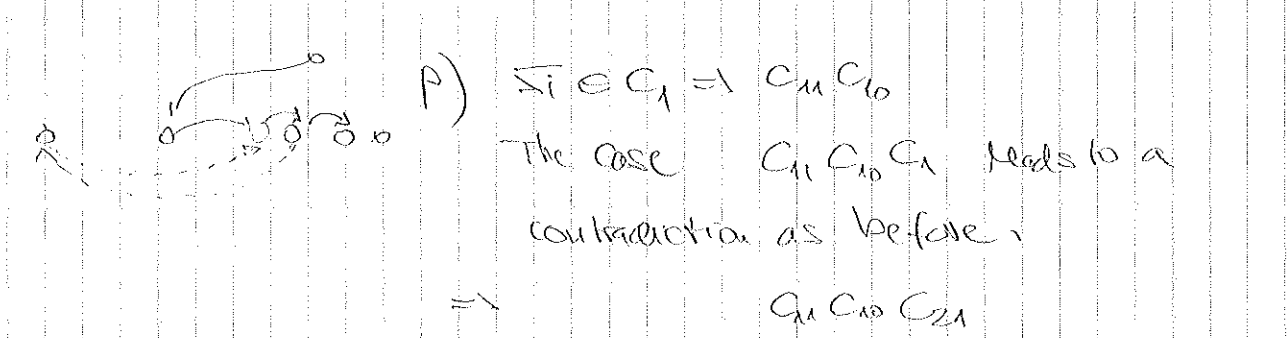 β) Si ∈ C₁ ⇒ C₁₁ C₁₀
The case C₁₁ C₁₀ C₁ leads to a
contradiction as before.
⇒ C₁₁ C₁₀ C₂₁